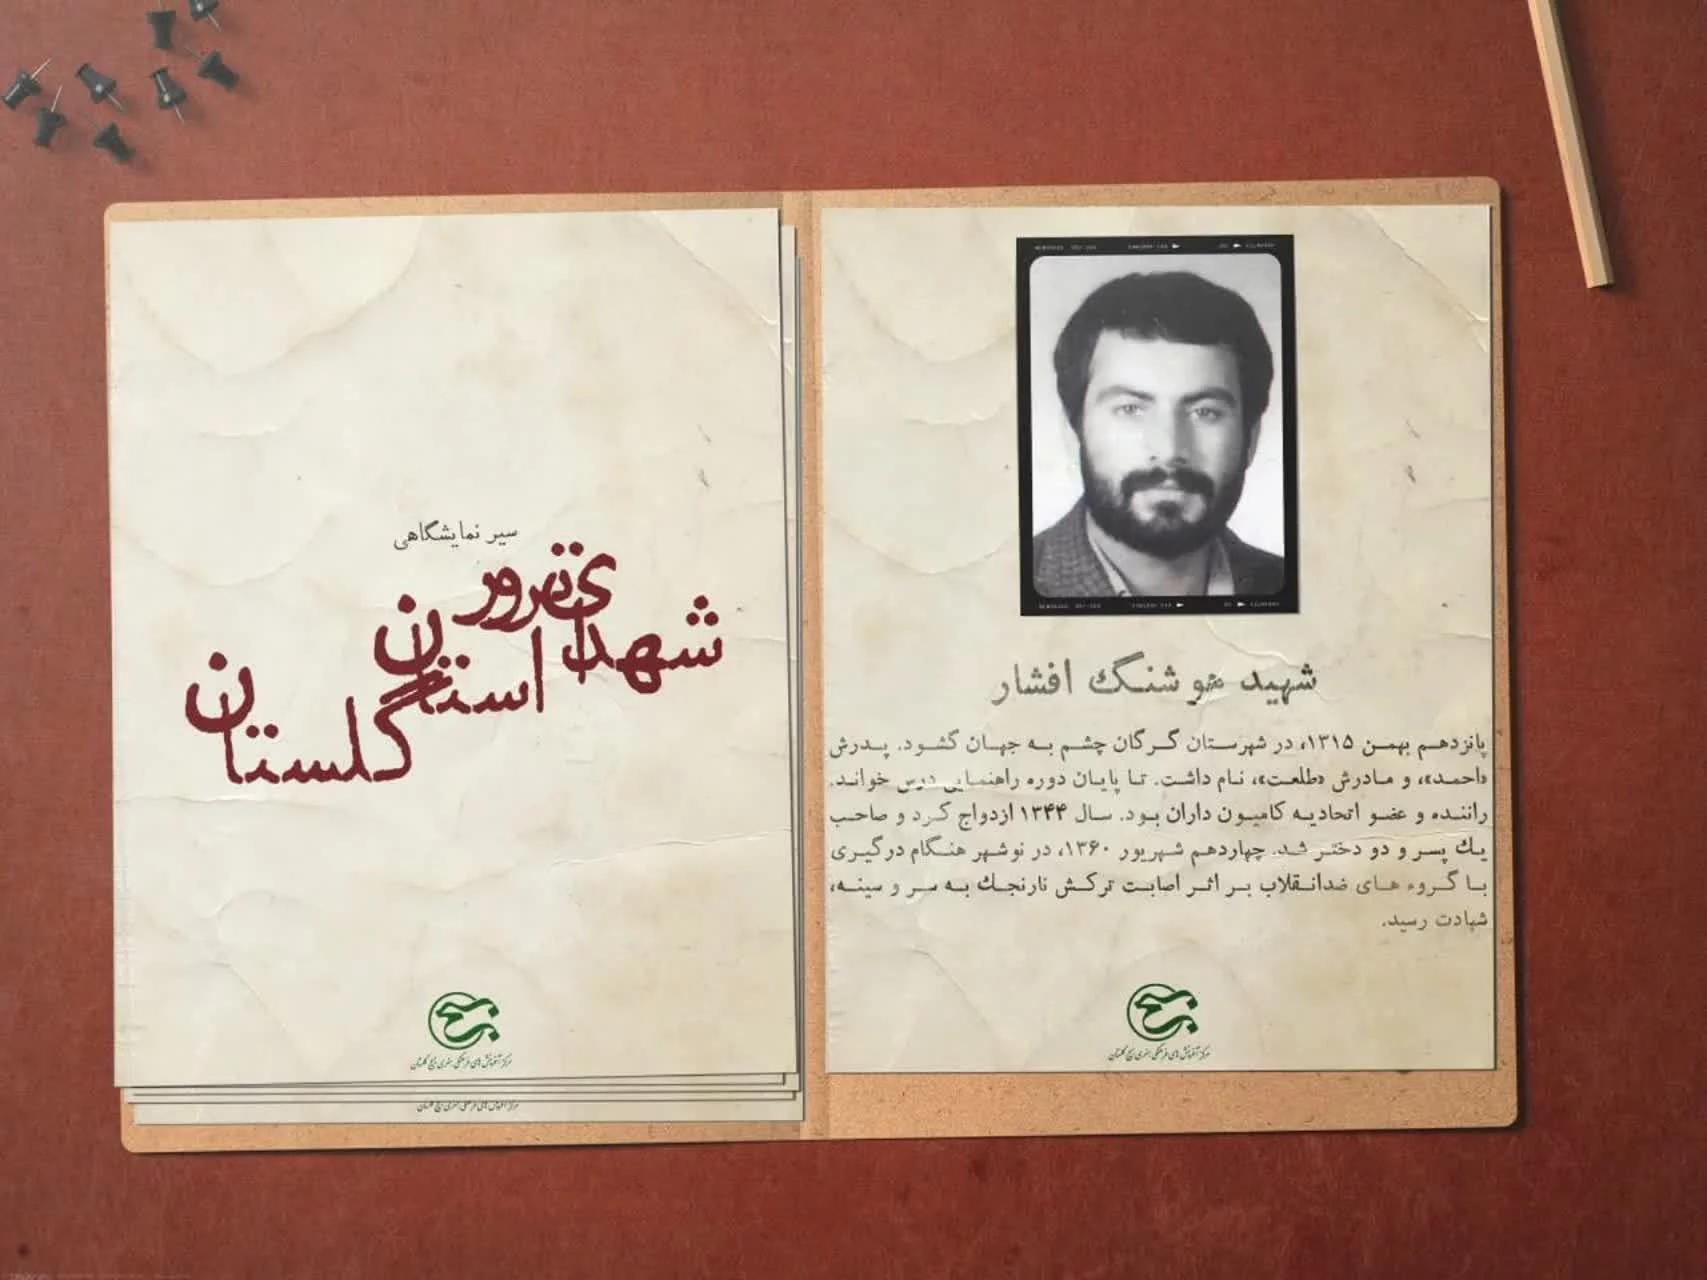 سیر نمایشگاهی
شهدای ترور
استان
گلستان
مرکز آفرینش های فرهنگی هنری بسیج گلستان
مرکز آفرینش های فرهنگی هنری بسیج گلستان
شهید هوشنگ افشار
پانزدهم بهمن ۱۳۱۵، در شهرستان گرگان چشم به جهان گشود. پدرش
«احمد»، و مادرش «طلعت»، نام داشت. تا پایان دوره راهنمایی درس خواند.
راننده و عضو اتحادیه کامیون داران بود. سال ۱۳۴۴ ازدواج کرد و صاحب
یک پسر و دو دختر شد. چهاردهم شهریور ۱۳۶۰، در نوشهر هنگام درگیری
با گروه های ضدانقلاب بر اثر اصابت ترکش نارنجک به سر و سینه،
شهادت رسید.
بسیج
مرکز آفرینش های فرهنگی هنری بسیج گلستان